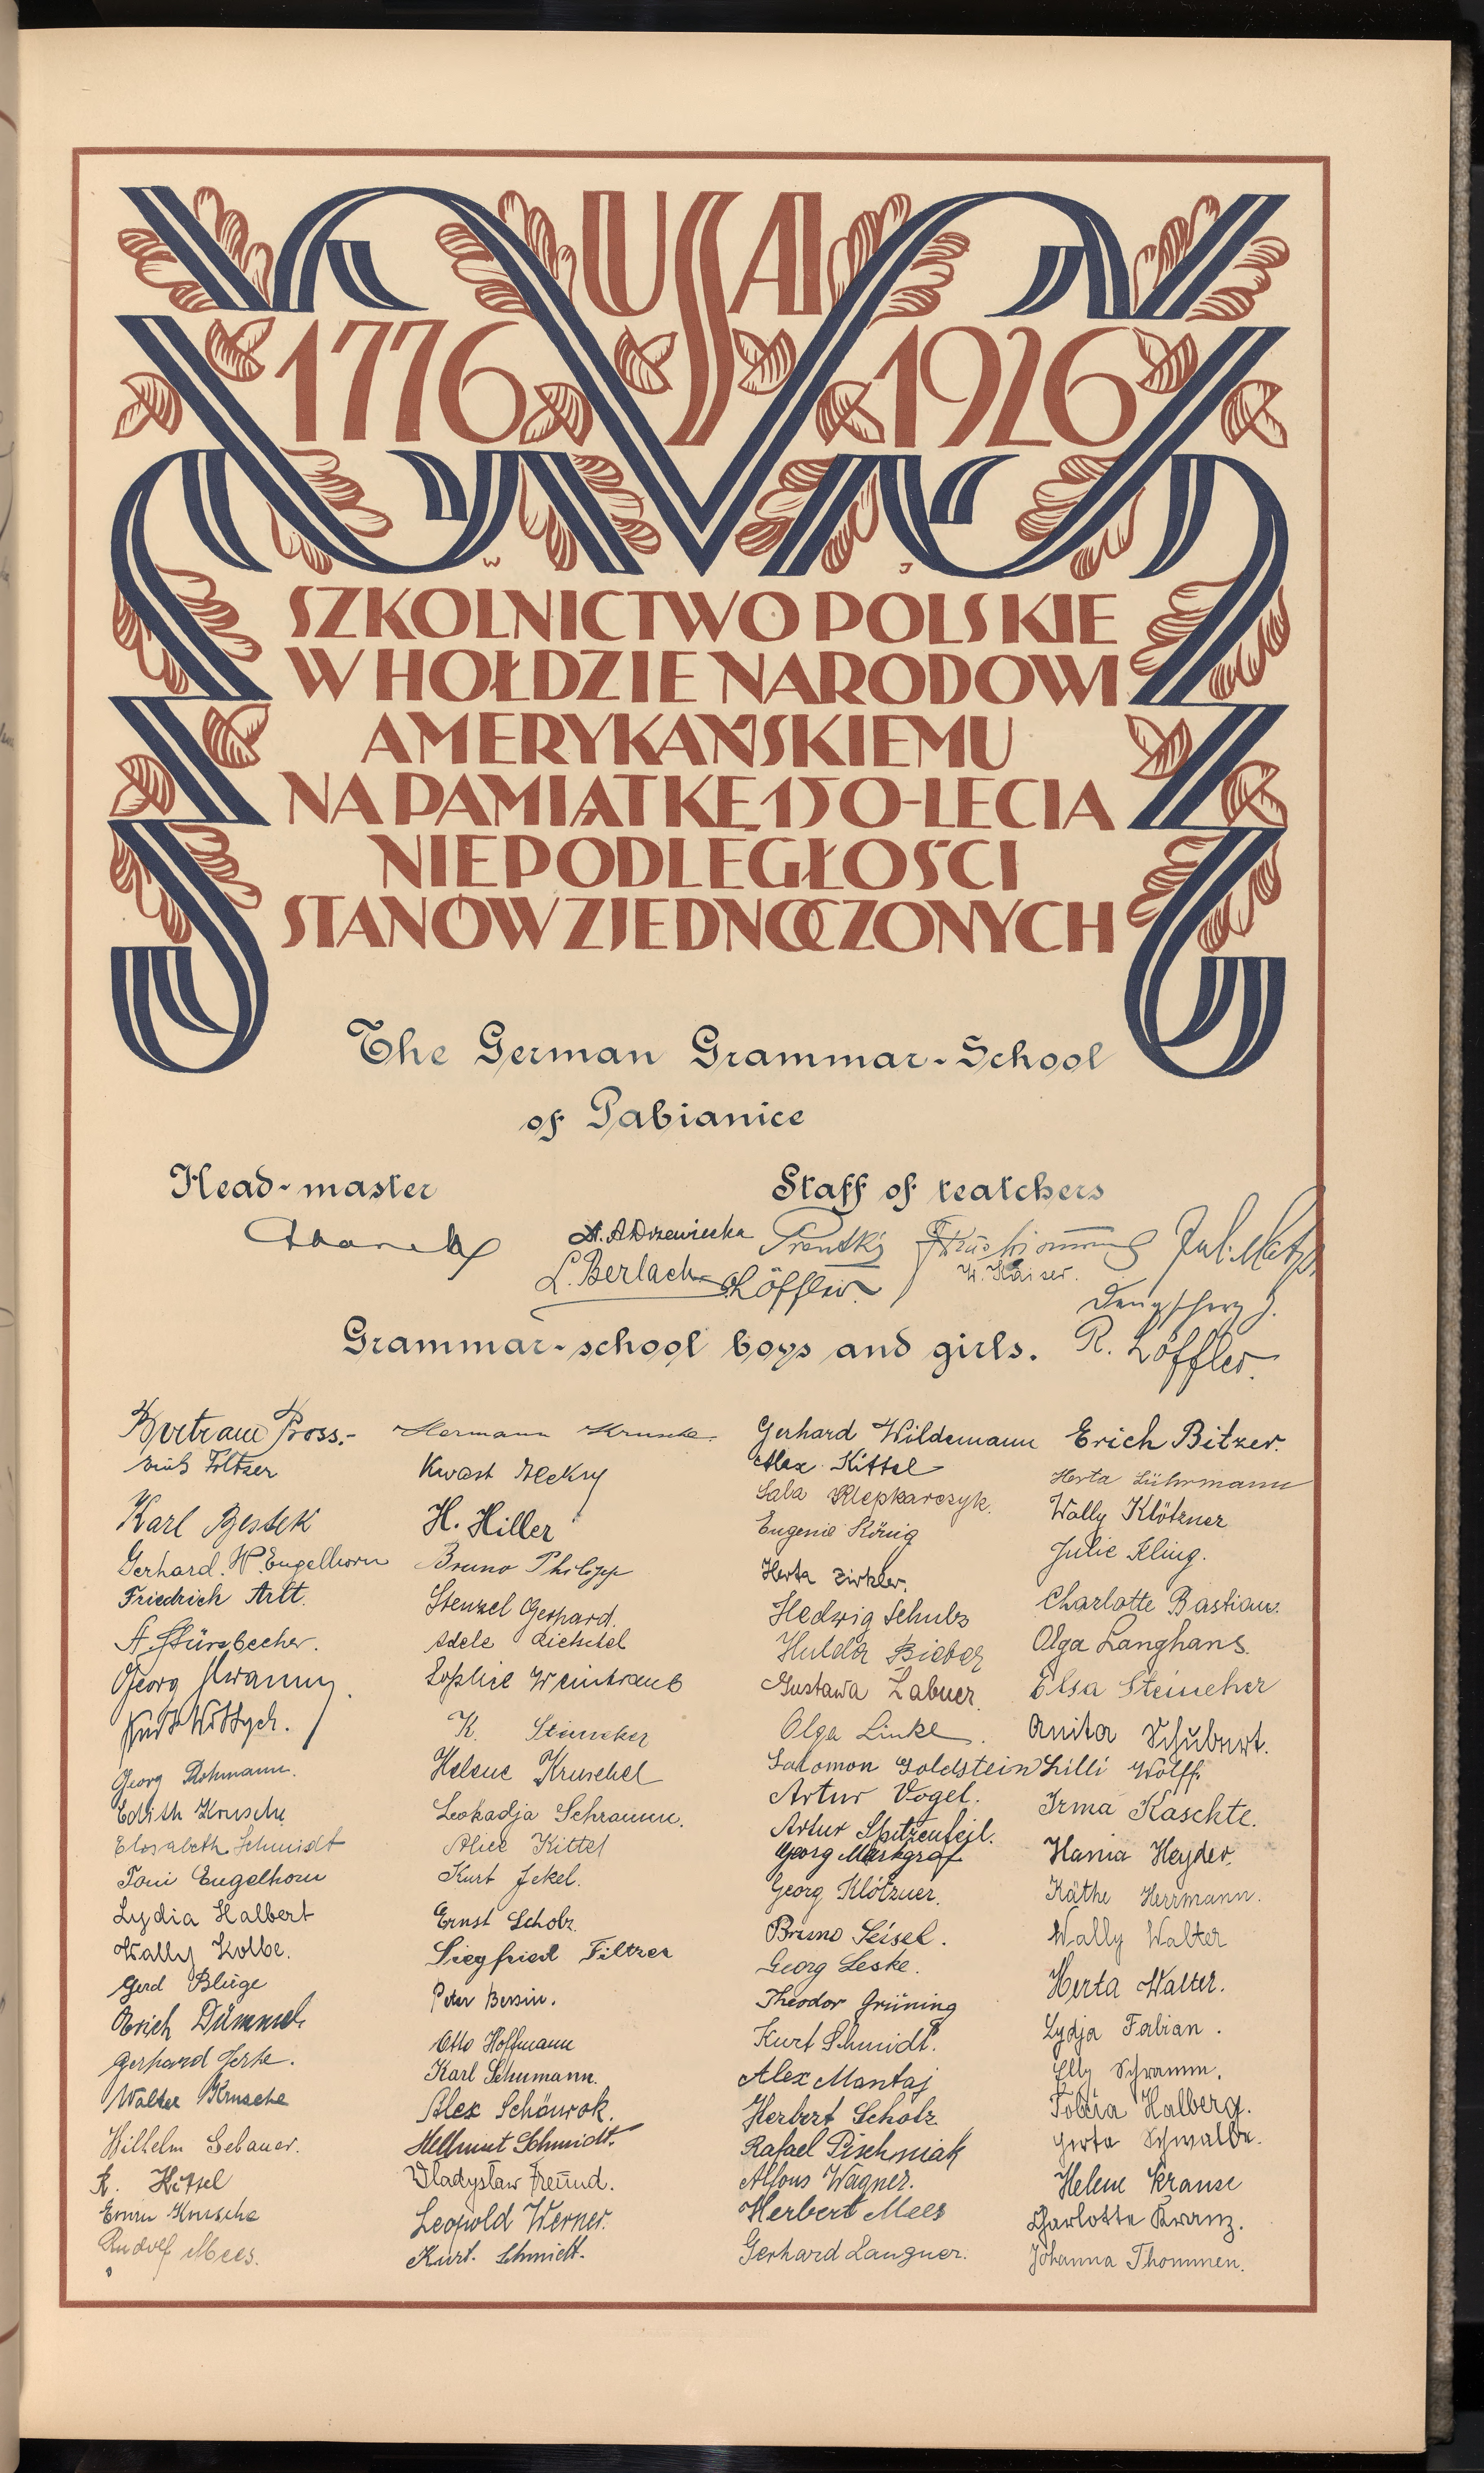 USA
1776 1926
W J
SZKOLNICTWO POLSKIE
W HOŁDZIE NARODOWI
AMERYKAŃSKIEMU
NA PAMIĄTKĘ 150-LECIA
NIEPODLEGŁOŚCI
STANÓW ZJEDNOCZONYCH
The German Grammar-School
of Pabianice
Head-master
Staff of teatchers
A. Drzewiecka
L. Berlach
Löffler.
W. Kaiser.
Grammar-school boys and girls.
R. Löffler.
Bertram Pross.-
Filtzer
Karl Bestek
Gerhard. W. Engelhorn
Friedrich Artt.
A. Stürzbecher.
Georg
Kurt Wittych.
Georg Rohmann.
Edith Krusche
Elisabeth Schmidt
Toni Engelhorn
Lydia Halbert
Wally Kolbe.
Gerd Bluge
Erich Dümmel
Gerhard Jerke.
Walter Krusche
Wilhelm Gebauer.
A. Kittel
Krusche
Rudolf Mees.
Hermann Krusche.
Kwast
H. Hiller
Bruno Philipp
Stenzel Gerhard.
Adele
Sophie Weintraub
K. Steincker
Helene Kruschel
Leokadja Schramm.
Alice Kittel
Kurt Jekel.
Ernst Scholz.
Siegfried Filtzer
Peter Bersin.
Otto Hoffmann
Karl Schumann.
Alex Schönrok.
Hellmut Schmidt.
Vladysław Freund.
Leopold Werner.
Kurt. Schmidt.
Gerhard Wildemann
Alex Kittel
Sala Klepkarczyk.
Eugenie König
Herta Zirkler.
Hedwig Schubs
Hulda Bieber
Gustawa Zabner
Olga Linke.
Salomon Goldstein
Artur Vogel.
Artur Spitzenfeil.
Georg Markgraf
Georg Klötzner.
Bruno Seisel.
Georg Leske.
Theodor Grüning
Kurt Schmidt.
Alex Mantaj
Herbert Scholz
Rafael Pischniak
Alfons Wagner.
Herbert Mees
Gerhard Langner.
Erich Bitzer.
Herta Lührmann
Wally Klötzner
Julie Kling.
Charlotte Bastian.
Olga Langhans.
Elsa Steincker
Anita Schubert.
Lilli Wolff.
Irma Kaschke.
Hania Heyder.
Käthe Herrmann.
Wally Walter
Herta Walter.
Lydja Fabian.
Elly Schramm.
Halberg.
Herta Schwalbe.
Helene Krause
Charlotte Kranz.
Johanna Thommen.